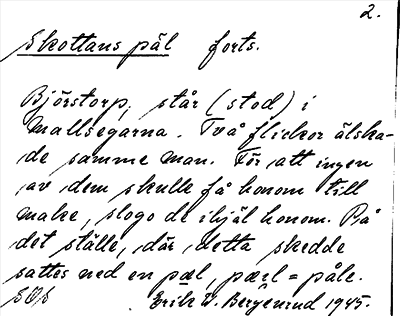 2.
Skottans päl forts.
Björstorp, står (stod) i
Mallsegarna. Två flickor älska-
de samme man. För att ingen
av dem skulle få honom till
make, slogo de ihjäl honom. På
det ställe, där detta skedde
sattes ned en pæl, pæl = påle.
Erik W. Bergenrud 1945.